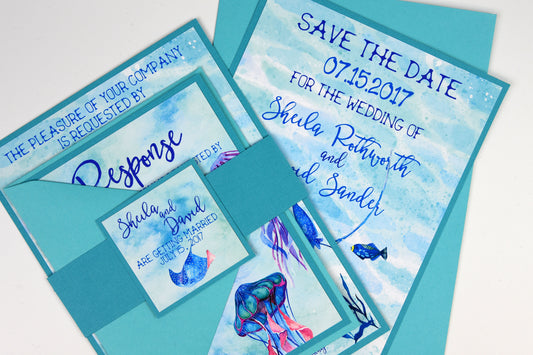 THE PLEASURE OF YOUR COMPANY
IS REQUESTED BY
Response
BY
Sheila
and
David
ARE GETTING MARRIED
JULY 15, 2017
SAVE THE DATE
07.15.2017
FOR THE WEDDING OF
Sheila Rothworth
and
Sander